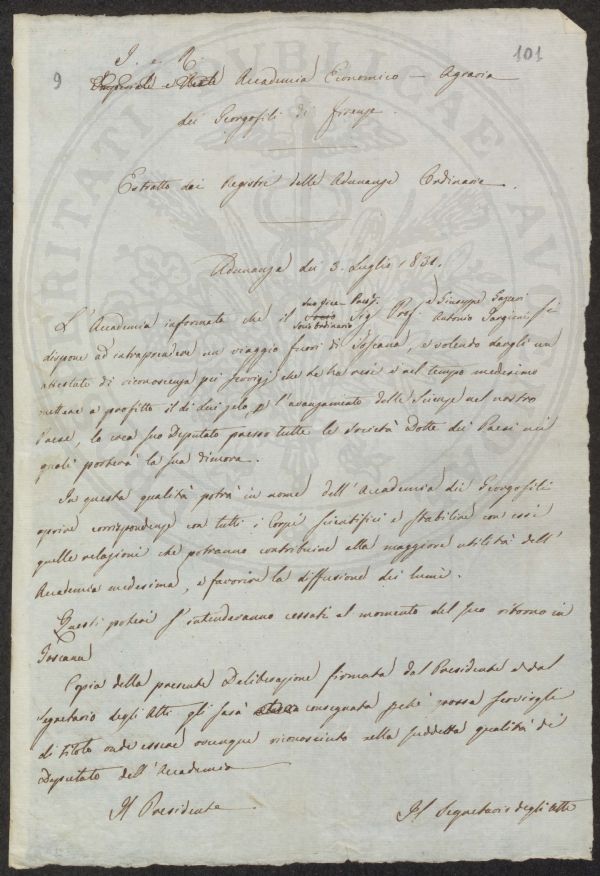 9
101
I. e R.
Imperiale e Reale Accademia Economico - Agraria
dei Georgofili di Firenze.
Estratto dai Registri delle Adunanze Ordinarie.
Adunanza dei 3. Luglio 1831.
suo Vice-
e Giuseppe Gazzeri
L'Accademia informata che il Socio Sig. Prof. Antonio Targioni si
Socio Ordinario
dispone ad intraprendere un viaggio fuori di Toscana, e volendo dargli un
attestato di riconoscenza pei servizj che le ha resi e nel tempo medesimo
mettere a profitto il di lui zelo, p l'avanzamento delle Scienze nel nostro
Paese, lo crea suo Deputato presso tutte le Società Dotte dei Paesi nei
quali porterà la sua dimora.
In questa qualità potrà in nome dell'Accademia dei Georgofili
aprire corrispondenze con tutti i Corpi scientifici e stabilire con essi
quelle relazioni che potranno contribuire alla maggiore utilità dell'
Accademia medesima, e favorire la diffusione dei lumi.
Questi poteri s'intenderanno cessati al momento del suo ritorno in
Toscana
Copia della presente Deliberazione firmata dal Presidente e dal
Segretario degli Atti gli sarà consegnata pchè possa servirgli
di titolo onde essere ovunque riconosciuto nella suddetta qualità di
Deputato dell'Accademia
Il Presidente.
Il Segretario degli Atti